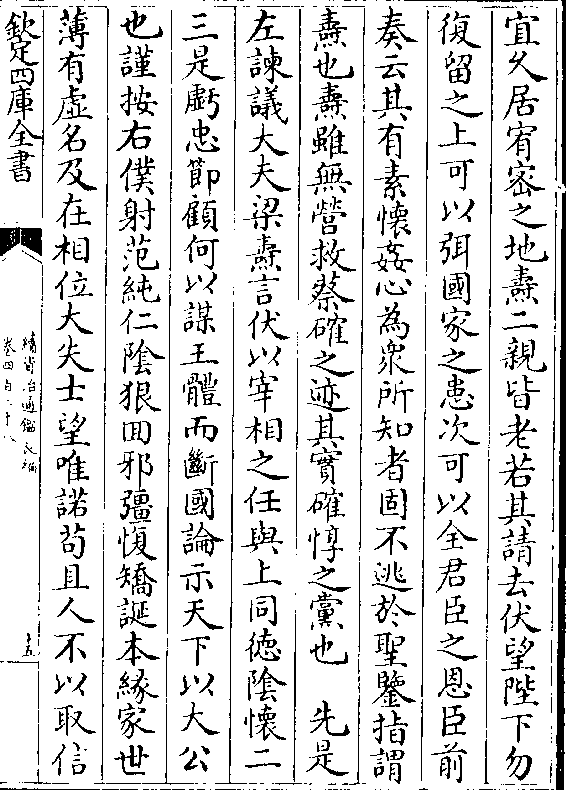 宜久居宥密之地燾二親皆老若其請去伏望陛下勿
復留之上可以弭國家之患次可以全君臣之恩臣前
奏云其有素懷姦心為衆所知者固不逃於聖鑒指謂
燾也燾雖無營救蔡確之迹其實確惇之黨也　先是
左諫議大夫梁燾言伏以宰相之任與上同徳陰懐二
三是虧忠節顧何以謀王體而斷國論示天下以大公
也謹按右僕射范純仁陰狠回邪彊愎矯誕本緣家世
薄有虛名及在相位大失士望唯諾茍且人不以取信
欽定四庫全書
續資治通鑑長編
十五